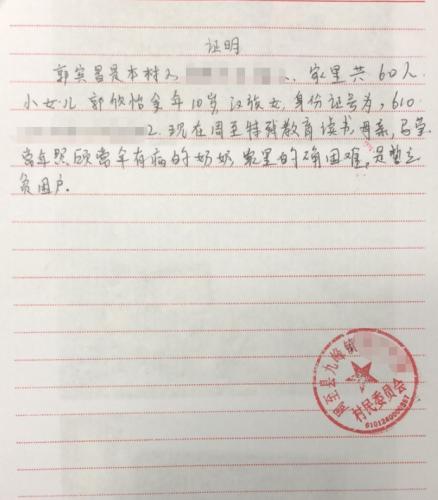 证明
郭宾昌是本村人 家里共60人
小女儿郭攸怡金年10岁汉族女,身份证号为,610
2.现在周至特殊教育读书,母亲,吕莹
常年照顾常年有病的奶奶 家里的确困难,是
贫困户.
周至县九峰镇
村民委员会